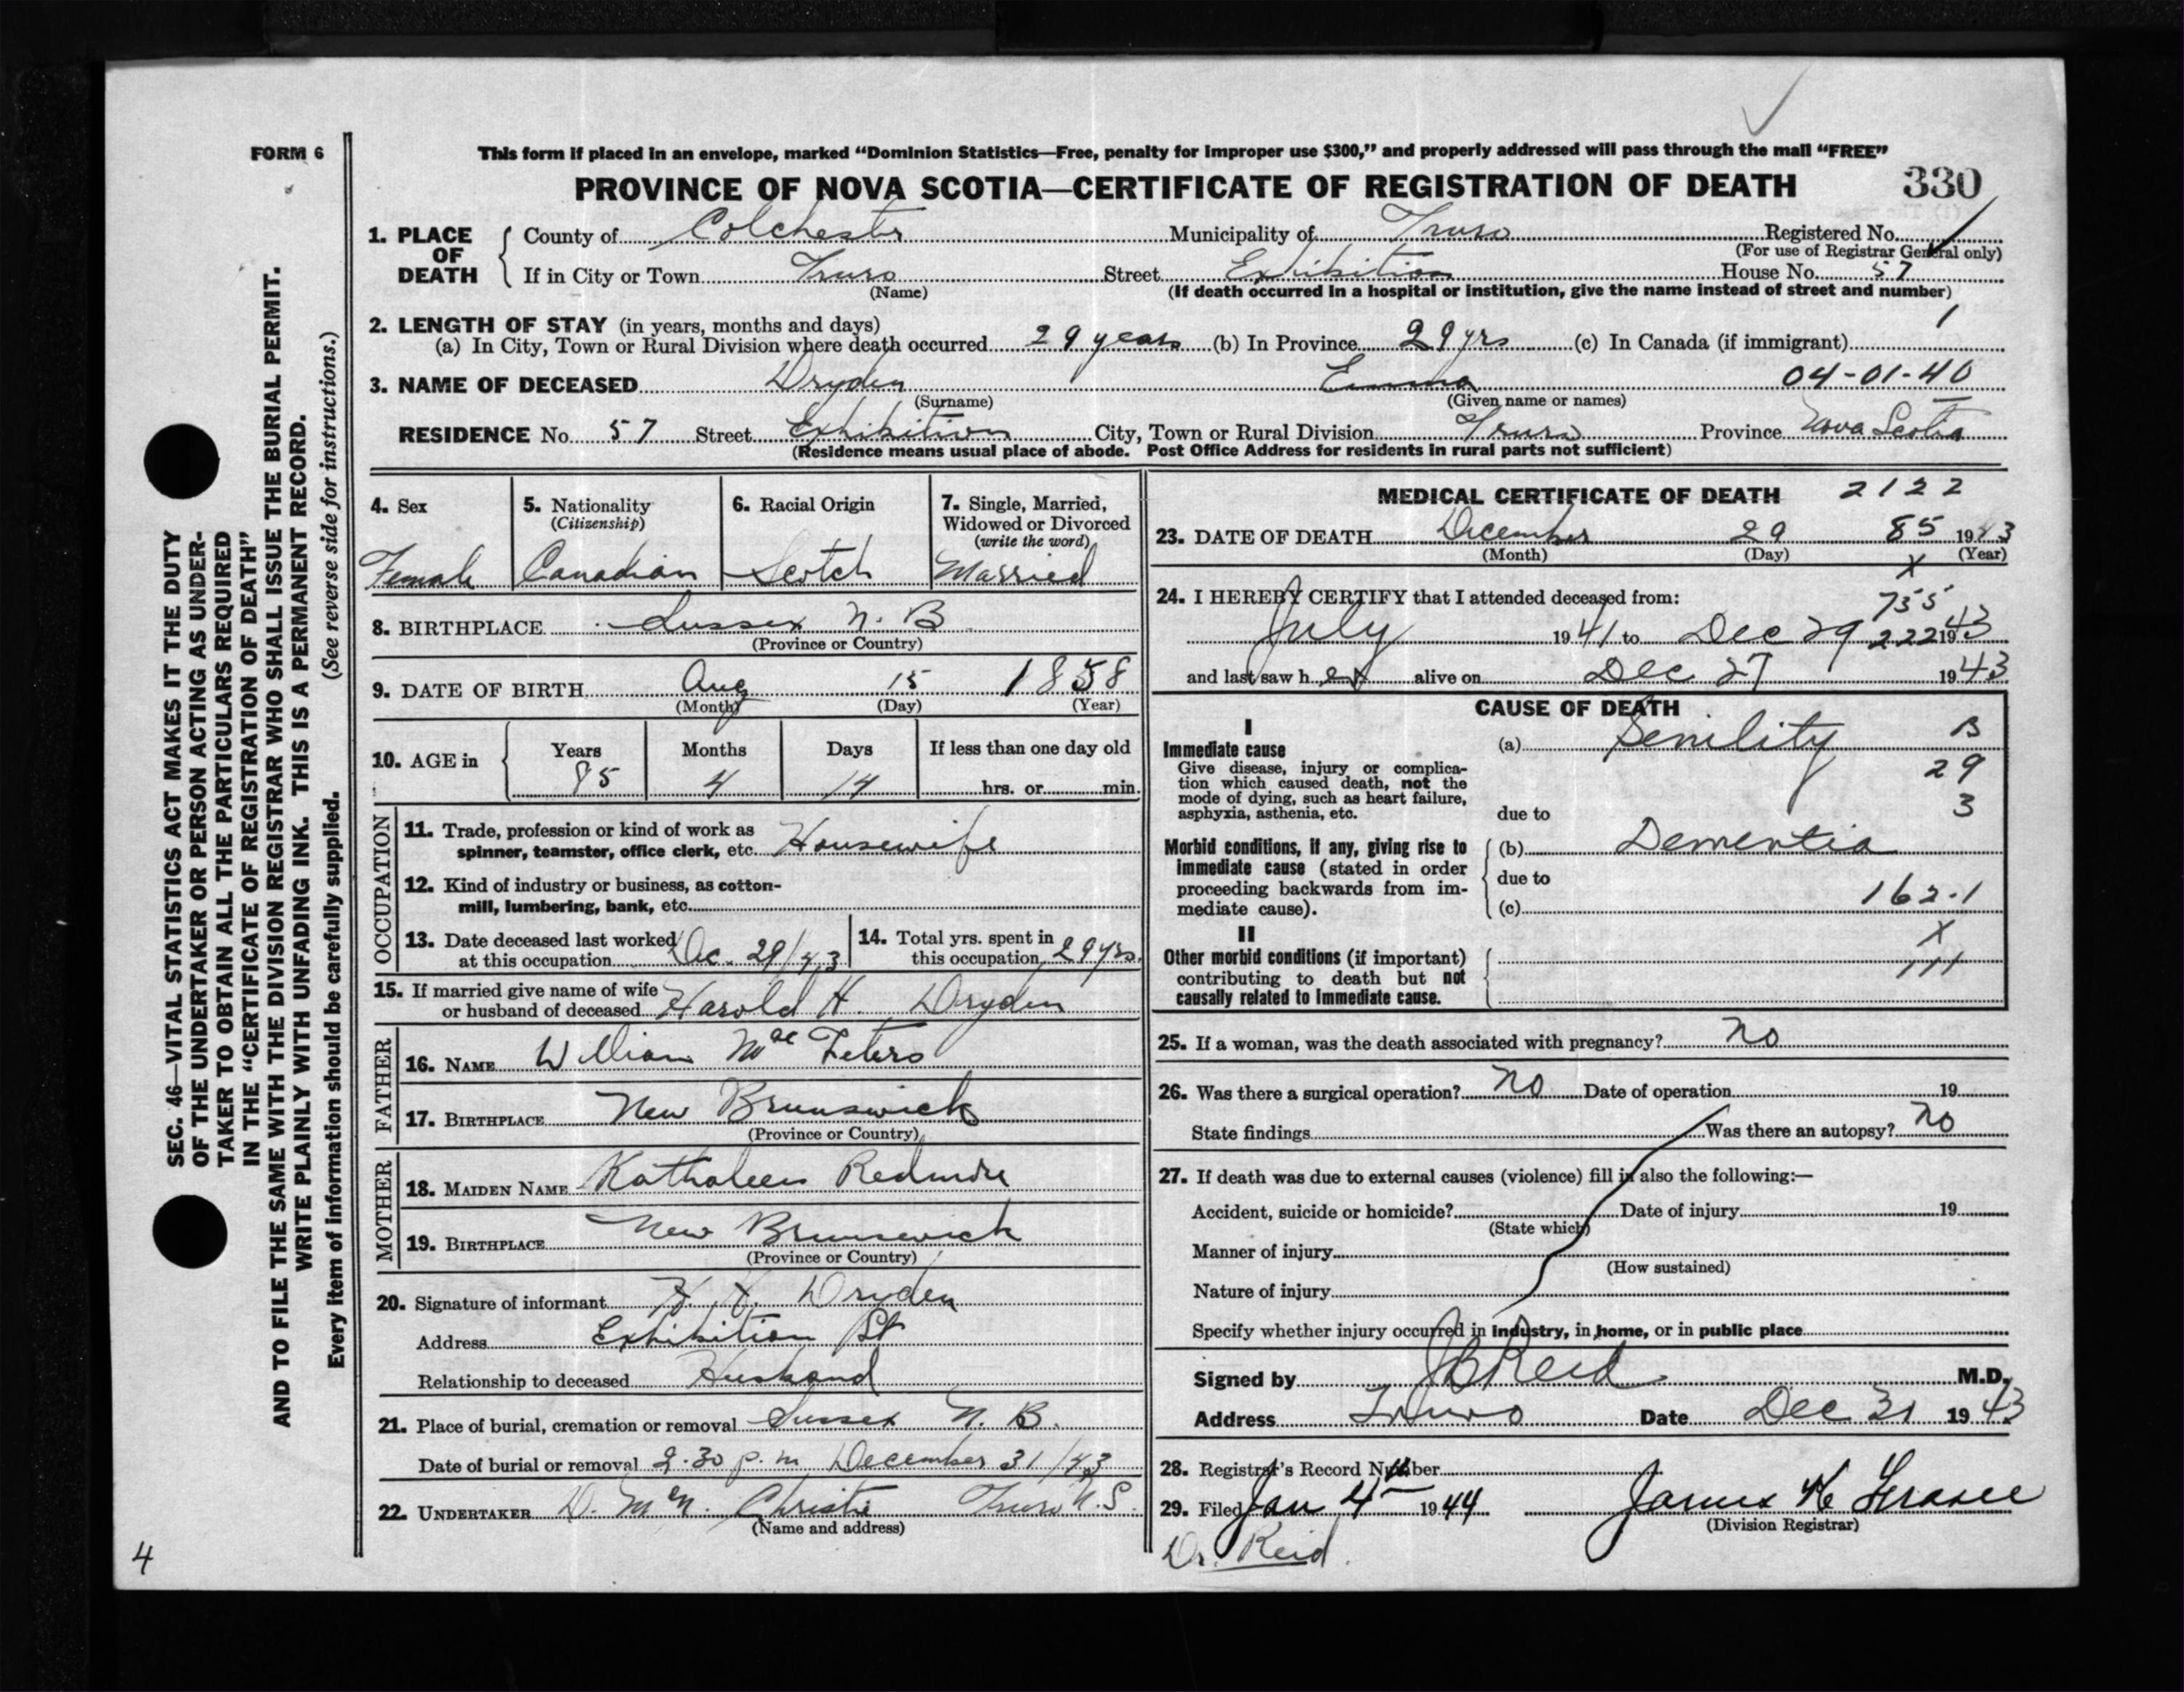 FORM 6
This form if placed in an envelope, marked “Dominion Statistics—Free, penalty for improper use $300,” and properly addressed will pass through the mail “FREE”
PROVINCE OF NOVA SCOTIA—CERTIFICATE OF REGISTRATION OF DEATH 330
1. PLACE OF DEATH
County of Colchester Municipality of Truro Registered No.
(For use of Registrar General only)
If in City or Town Truro Street Exhibition House No. 57
(Name) (If death occurred in a hospital or institution, give the name instead of street and number)
2. LENGTH OF STAY (in years, months and days) 1
(a) In City, Town or Rural Division where death occurred 29 years (b) In Province 29 yrs (c) In Canada (if immigrant)
3. NAME OF DECEASED Dryden Emma 04-01-40
(Surname) (Given name or names)
RESIDENCE No. 57 Street Exhibition City, Town or Rural Division Truro Province Nova Scotia
(Residence means usual place of abode. Post Office Address for residents in rural parts not sufficient)
4. Sex
Female
5. Nationality
(Citizenship)
Canadian
6. Racial Origin
Scotch
7. Single, Married,
Widowed or Divorced
(write the word)
Married
8. BIRTHPLACE Sussex N. B
(Province or Country)
9. DATE OF BIRTH Aug 15 1858
(Month) (Day) (Year)
10. AGE in Years Months Days If less than one day old
85 4 14 hrs. or min.
OCCUPATION
11. Trade, profession or kind of work as
spinner, teamster, office clerk, etc. Housewife
12. Kind of industry or business, as cotton-
mill, lumbering, bank, etc.
13. Date deceased last worked
at this occupation Dec. 29/43
14. Total yrs. spent in
this occupation 29 yrs.
15. If married give name of wife
or husband of deceased Harold H. Dryden
FATHER
16. NAME William Mac Feters
17. BIRTHPLACE New Brunswick
(Province or Country)
MOTHER
18. MAIDEN NAME Kathaleen
19. BIRTHPLACE New Brunswick
(Province or Country)
20. Signature of informant H. H. Dryden
Address Exhibition St
Relationship to deceased Husband
21. Place of burial, cremation or removal Sussex N. B.
Date of burial or removal 2.30 p. m December 31/43
22. UNDERTAKER D. McN. Christie Truro N.S.
(Name and address)
MEDICAL CERTIFICATE OF DEATH 2122
23. DATE OF DEATH December 29 85 1943
(Month) (Day) (Year)
X
24. I HEREBY CERTIFY that I attended deceased from: 755
July 1941 to Dec 29 222 1943
and last saw her alive on Dec 27 1943
CAUSE OF DEATH
I
Immediate cause
Give disease, injury or complica-
tion which caused death, not the
mode of dying, such as heart failure,
asphyxia, asthenia, etc.
(a) Senility B
29
3
due to
Morbid conditions, if any, giving rise to
immediate cause (stated in order
proceeding backwards from im-
mediate cause).
(b) Dementia
due to
162-1
(c)
II X
Other morbid conditions (if important)
contributing to death but not
causally related to immediate cause.
111
25. If a woman, was the death associated with pregnancy? no
26. Was there a surgical operation? no Date of operation 19
State findings Was there an autopsy? no
27. If death was due to external causes (violence) fill in also the following:—
Accident, suicide or homicide? Date of injury 19
(State which)
Manner of injury
(How sustained)
Nature of injury
Specify whether injury occurred in industry, in home, or in public place
Signed by JB Reid M.D.
Address Truro Date Dec 31 1943
28. Registrar's Record Number
29. Filed Jan 4 1944 James K Fraser
(Division Registrar)
Dr. Reid.
SEC. 46—VITAL STATISTICS ACT MAKES IT THE DUTY
OF THE UNDERTAKER OR PERSON ACTING AS UNDER-
TAKER TO OBTAIN ALL THE PARTICULARS REQUIRED
IN THE “CERTIFICATE OF REGISTRATION OF DEATH”
AND TO FILE THE SAME WITH THE DIVISION REGISTRAR WHO SHALL ISSUE THE BURIAL PERMIT.
WRITE PLAINLY WITH UNFADING INK. THIS IS A PERMANENT RECORD.
Every item of information should be carefully supplied. (See reverse side for instructions.)
4